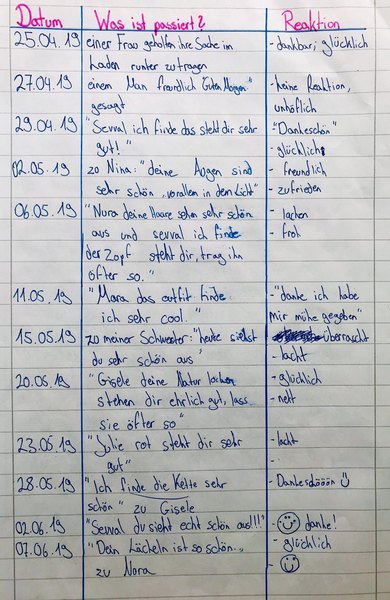 Datum Was ist passiert? Reaktion
25.04.19 einer Frau geholfen ihre Sache im - dankbar; glücklich
Laden runter zutragen
27.04.19 einem Man freundlich "Guten Morgen" - keine Reaktion,
gesagt unhöflich
29.04.19 "Sevval ich finde das steht dir sehr - "Dankeschön"
gut!" - glücklich
02.05.19 zu Nina: "deine Augen sind - freundlich
sehr schön, vorallem in dem Licht" - zufrieden
06.05.19 "Nura deine Haare sehen sehr schön - lachen
aus und sevval ich finde - froh
der Zopf steht dir, trag ihn
öfter so."
11.05.19 "Mara das outfit finde - "danke ich habe
ich sehr cool." mir mühe gegeben"
15.05.19 zu meiner Schwester: "heute siehst - überrascht
du sehr schön aus" - lacht
20.05.19 "Gisele deine Natur locken - glücklich
stehen dir ehrlich gut, lass - nett
sie öfter so"
23.05.19 "Julie rot steht dir sehr - lacht
gut" -
28.05.19 "Ich finde die Kette sehr - Dankeschööön
schön" zu Gisele
02.06.19 "Sevval du sieht echt schön aus!!!" - danke!
07.06.19 "Dein Lächeln ist so schön.., - glücklich
zu Nora -